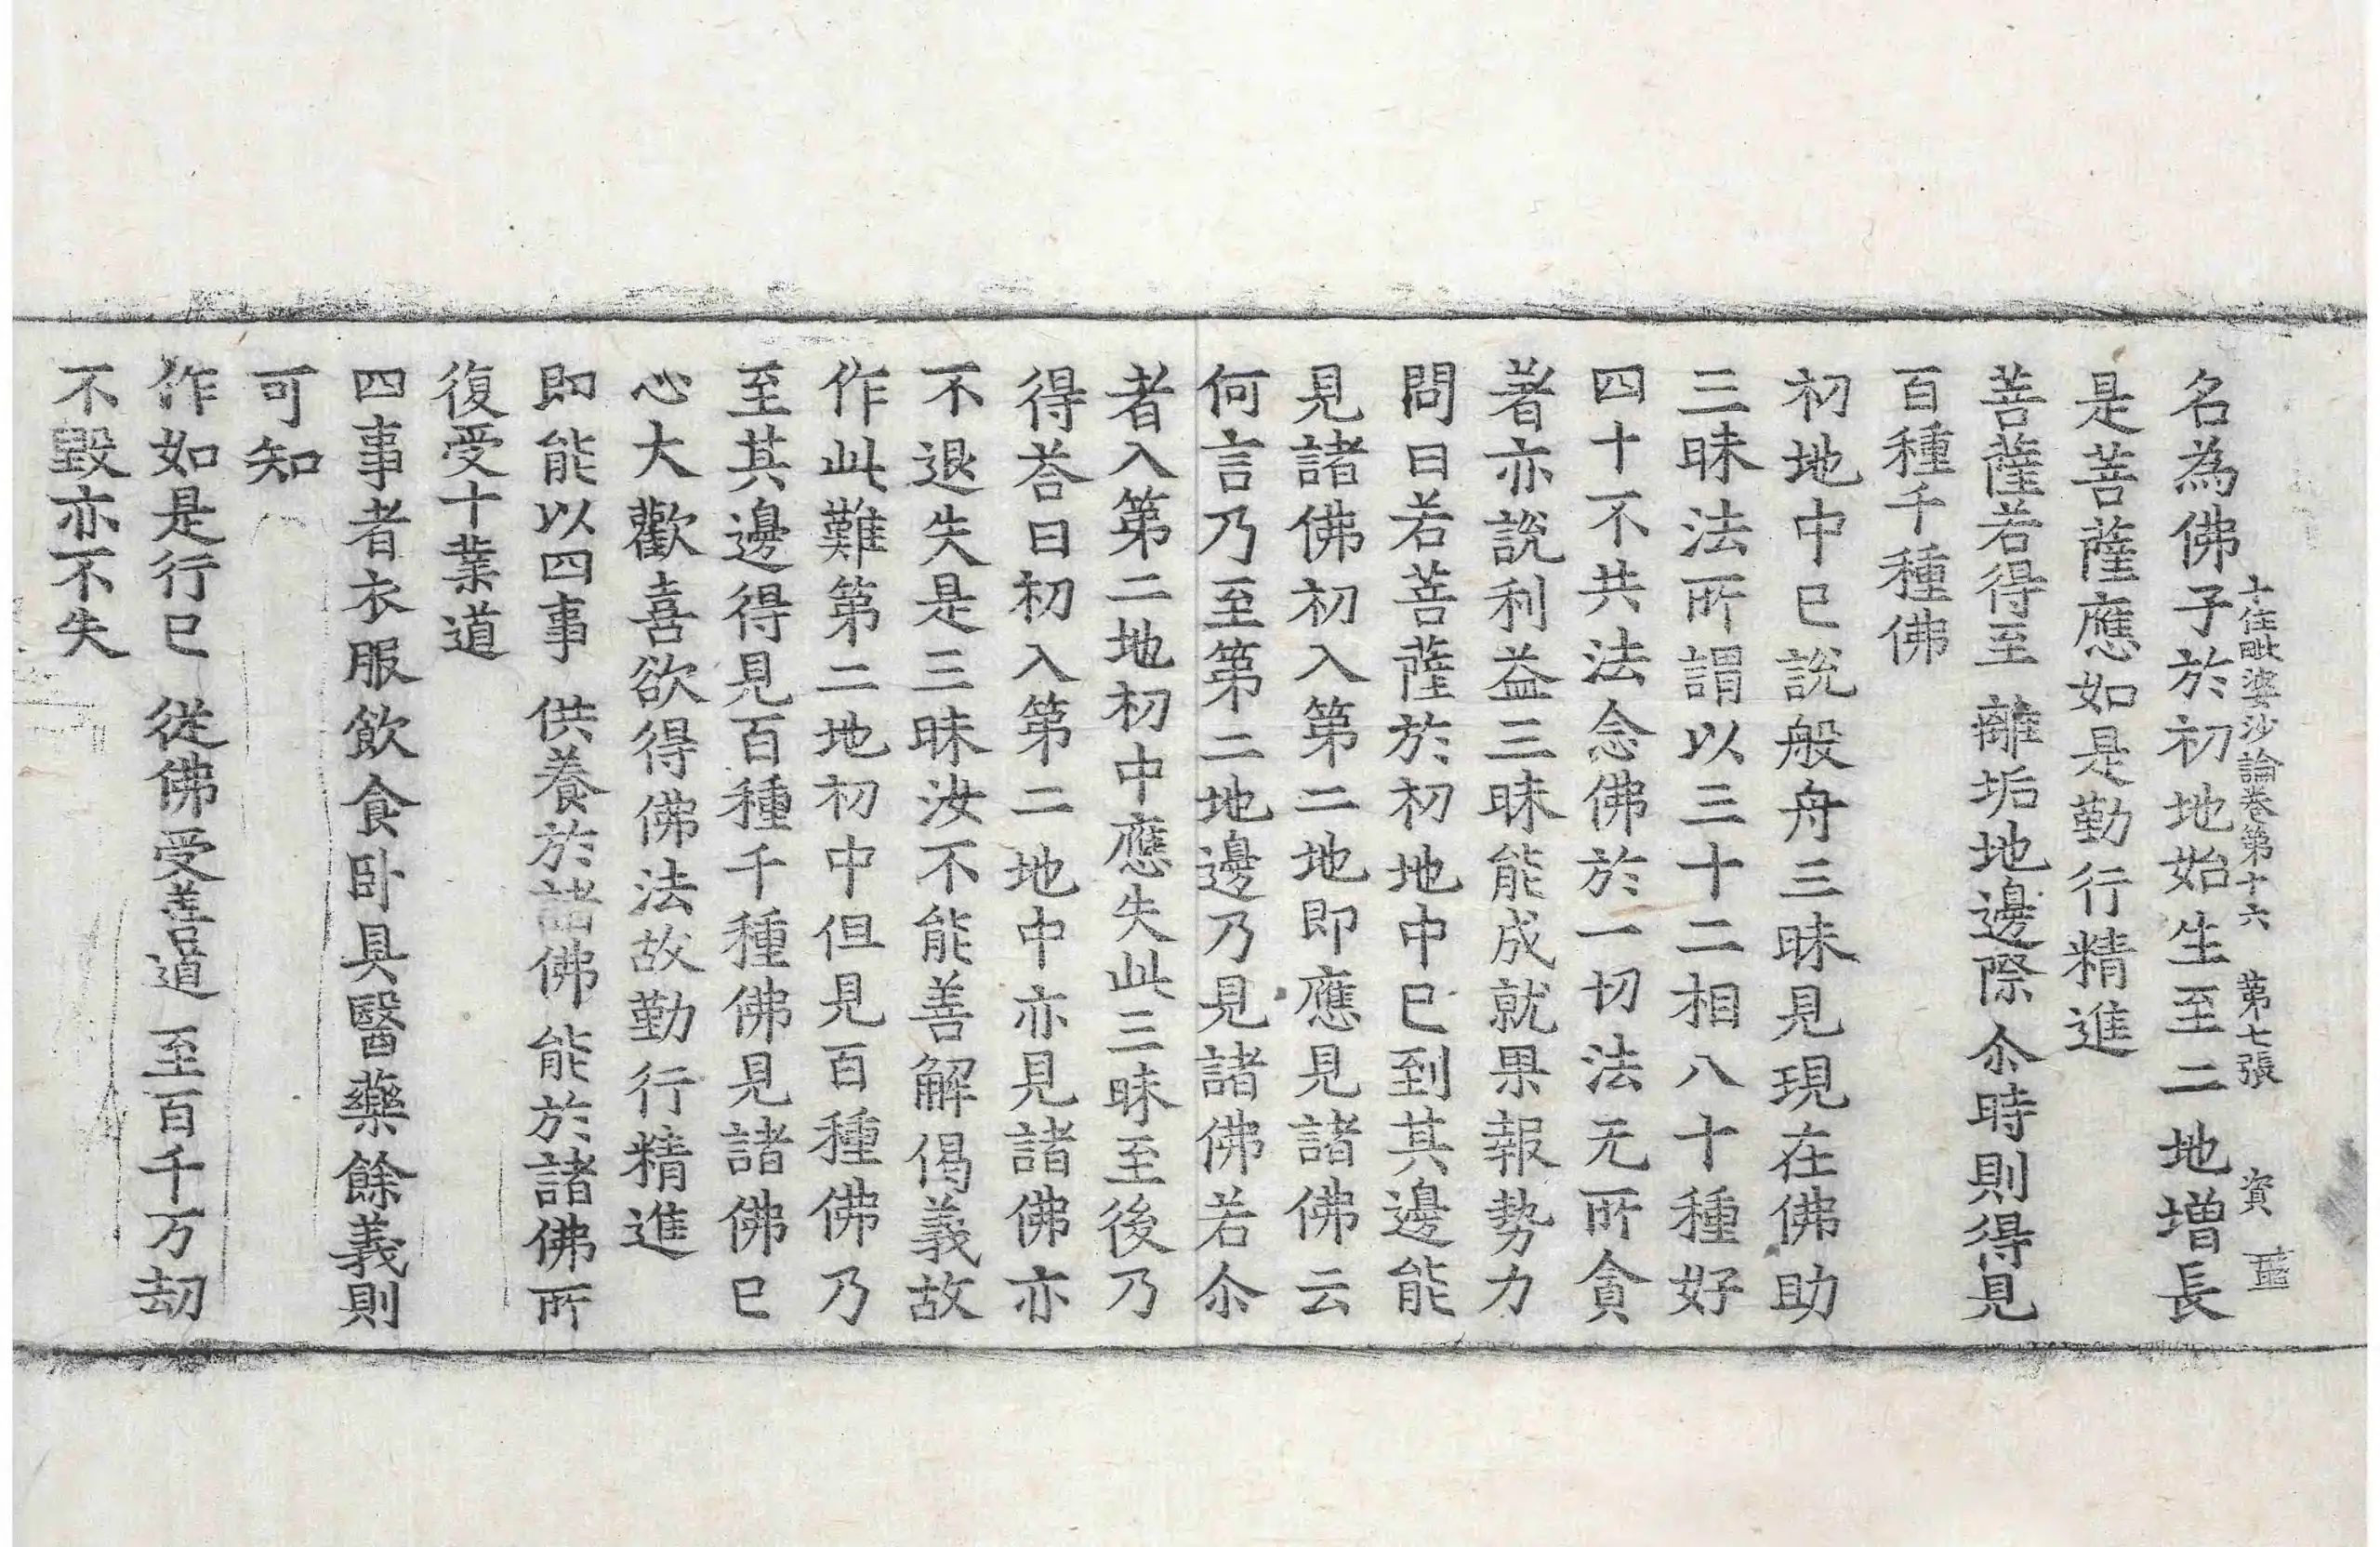 十住毗婆沙論卷第十六 第七張 資
名為佛子於初地始生至二地增長
是菩薩應如是勤行精進
菩薩若得至 離垢地邊際 尒時則得見
百種千種佛
初地中已說般舟三昧見現在佛助
三昧法所謂以三十二相八十種好
四十不共法念佛於一切法无所貪
著亦說利益三昧能成就果報勢力
問曰若菩薩於初地中已到其邊能
見諸佛初入第二地即應見諸佛云
何言乃至第二地邊乃見諸佛若尒
者入第二地初中應失此三昧至後乃
得荅曰初入第二地中亦見諸佛亦
不退失是三昧汝不能善解偈義故
作此難第二地初中但見百種佛乃
至其邊得見百種千種佛見諸佛已
心大歡喜欲得佛法故勤行精進
即能以四事 供養於諸佛 能於諸佛所
復受十業道
四事者衣服飲食卧具醫藥餘義則
可知
作如是行已 從佛受善道 至百千万劫
不毀亦不失